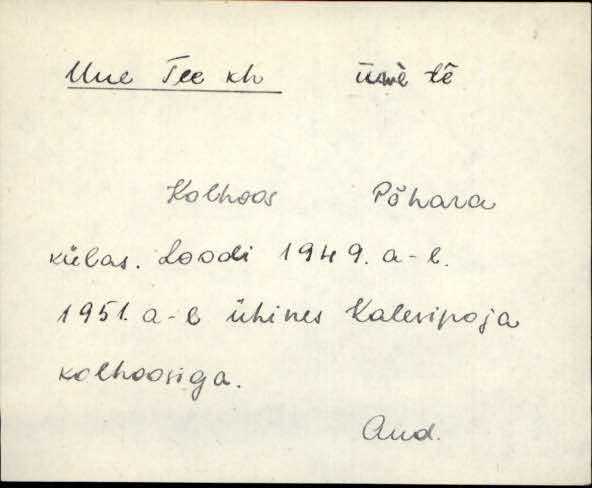 Uue Tee kh
Kolhoos Põhara
külas. Loodi 1949. a-l.
1951. a-l ühines Kalevipoja
kolhoosiga.
And.